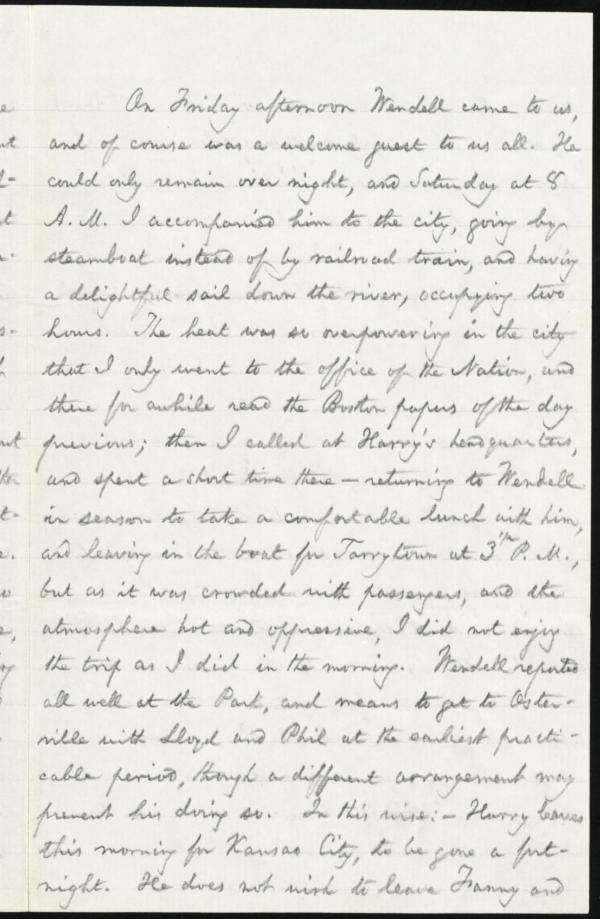 On Friday afternoon Wendell came to us,
and of course was a welcome guest to us all. He
could only remain over night, and Saturday at 8
A. M. I accompanied him to the city, going by
steamboat instead of by railroad train, and having
a delightful sail down the river, occupying two
hours. The heat was so overpowering in the city
that I only went to the office of the Nation, and
there for awhile read the Boston papers of the day
previous; then I called at Harry's headquarters,
and spent a short time there — returning to Wendell
in season to take a comfortable lunch with him,
and leaving in the boat for Tarrytown at P. M.,
but as it was crowded with passengers, and the
atmosphere hot and oppressive, I did not enjoy
the trip as I did in the morning. Wendell reported
all well at the Park, and means to get to Oster-
ville with Lloyd and Phil at the earliest practi-
cable period, though a different arrangement may
prevent his doing so. In this wise: — Harry leaves
this morning for Kansas City, to be gone a fort-
night. He does not wish to leave Fanny and